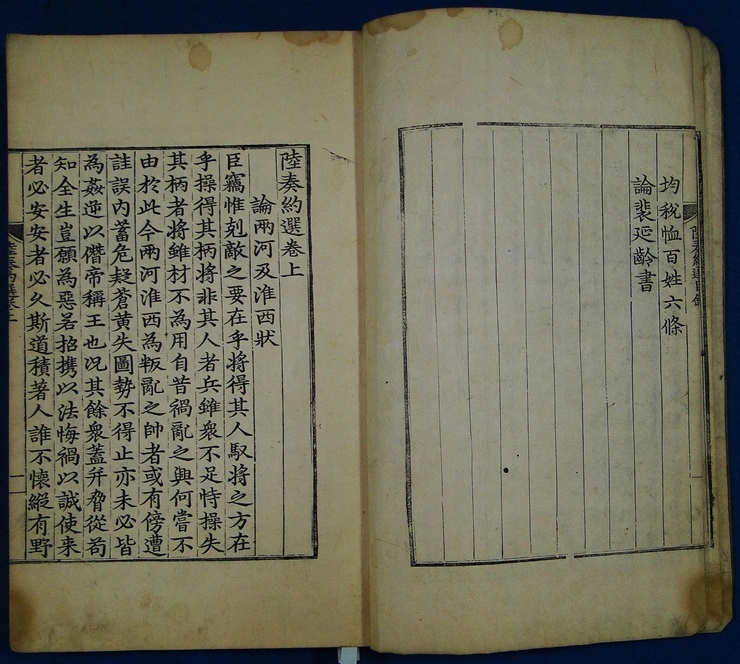 均稅恤百姓六條
論裴延齡書
陸奏約選目錄
陸奏約選卷上
論兩河及淮西狀
臣竊惟剋敵之要在乎將得其人馭將之方在
乎操得其柄將非其人者兵雖衆不足恃操失
其柄者將雖材不為用自昔禍亂之興何嘗不
由於此今兩河淮西為叛亂之帥者或有傍遭
詿誤內蓄危疑蒼黃失圖勢不得止亦未必皆
為姦逆以僭帝稱王也况其餘衆蓋并脅從苟
知全生豈願為惡若招携以法悔禍以誠使來
者必安安者必久斯道積著人誰不懷縱有野
陸奏約選卷上
一